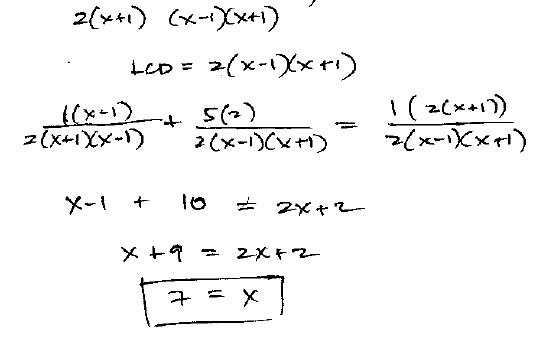 2(x+1) (x-1)(x+1)
LCD = 2(x-1)(x+1)
1(x-1) / 2(x+1)(x-1) + 5(2) / 2(x-1)(x+1) = 1(2(x+1)) / 2(x-1)(x+1)
x-1 + 10 = 2x+2
x+9 = 2x+2
7 = x